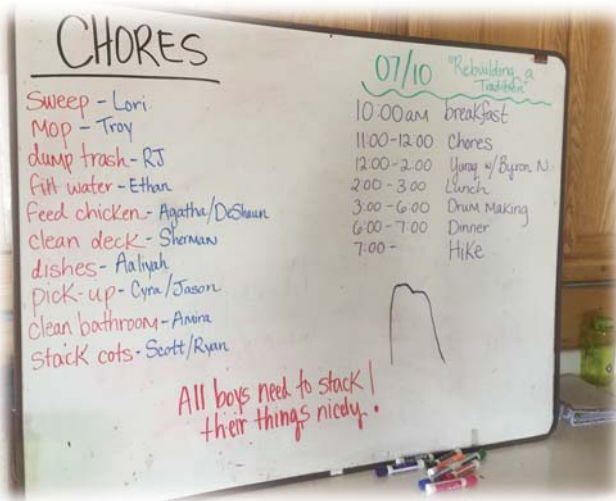 CHORES
Sweep - Lori
Mop - Troy
dump trash - RJ
fill water - Ethan
feed chicken - Agatha/DeShaun
clean deck - Sherman
dishes - Aaliyah
pick-up - Cyra/Jason
clean bathroom - Amira
stack cots - Scott/Ryan
All boys need to stack
their things nicely!
07/10 "Rebuilding a
Tradition"
10:00am breakfast
11:00-12:00 Chores
12:00-2:00 Yuraq w/Byron N.
2:00-3:00 Lunch
3:00-6:00 Drum Making
6:00-7:00 Dinner
7:00- Hike